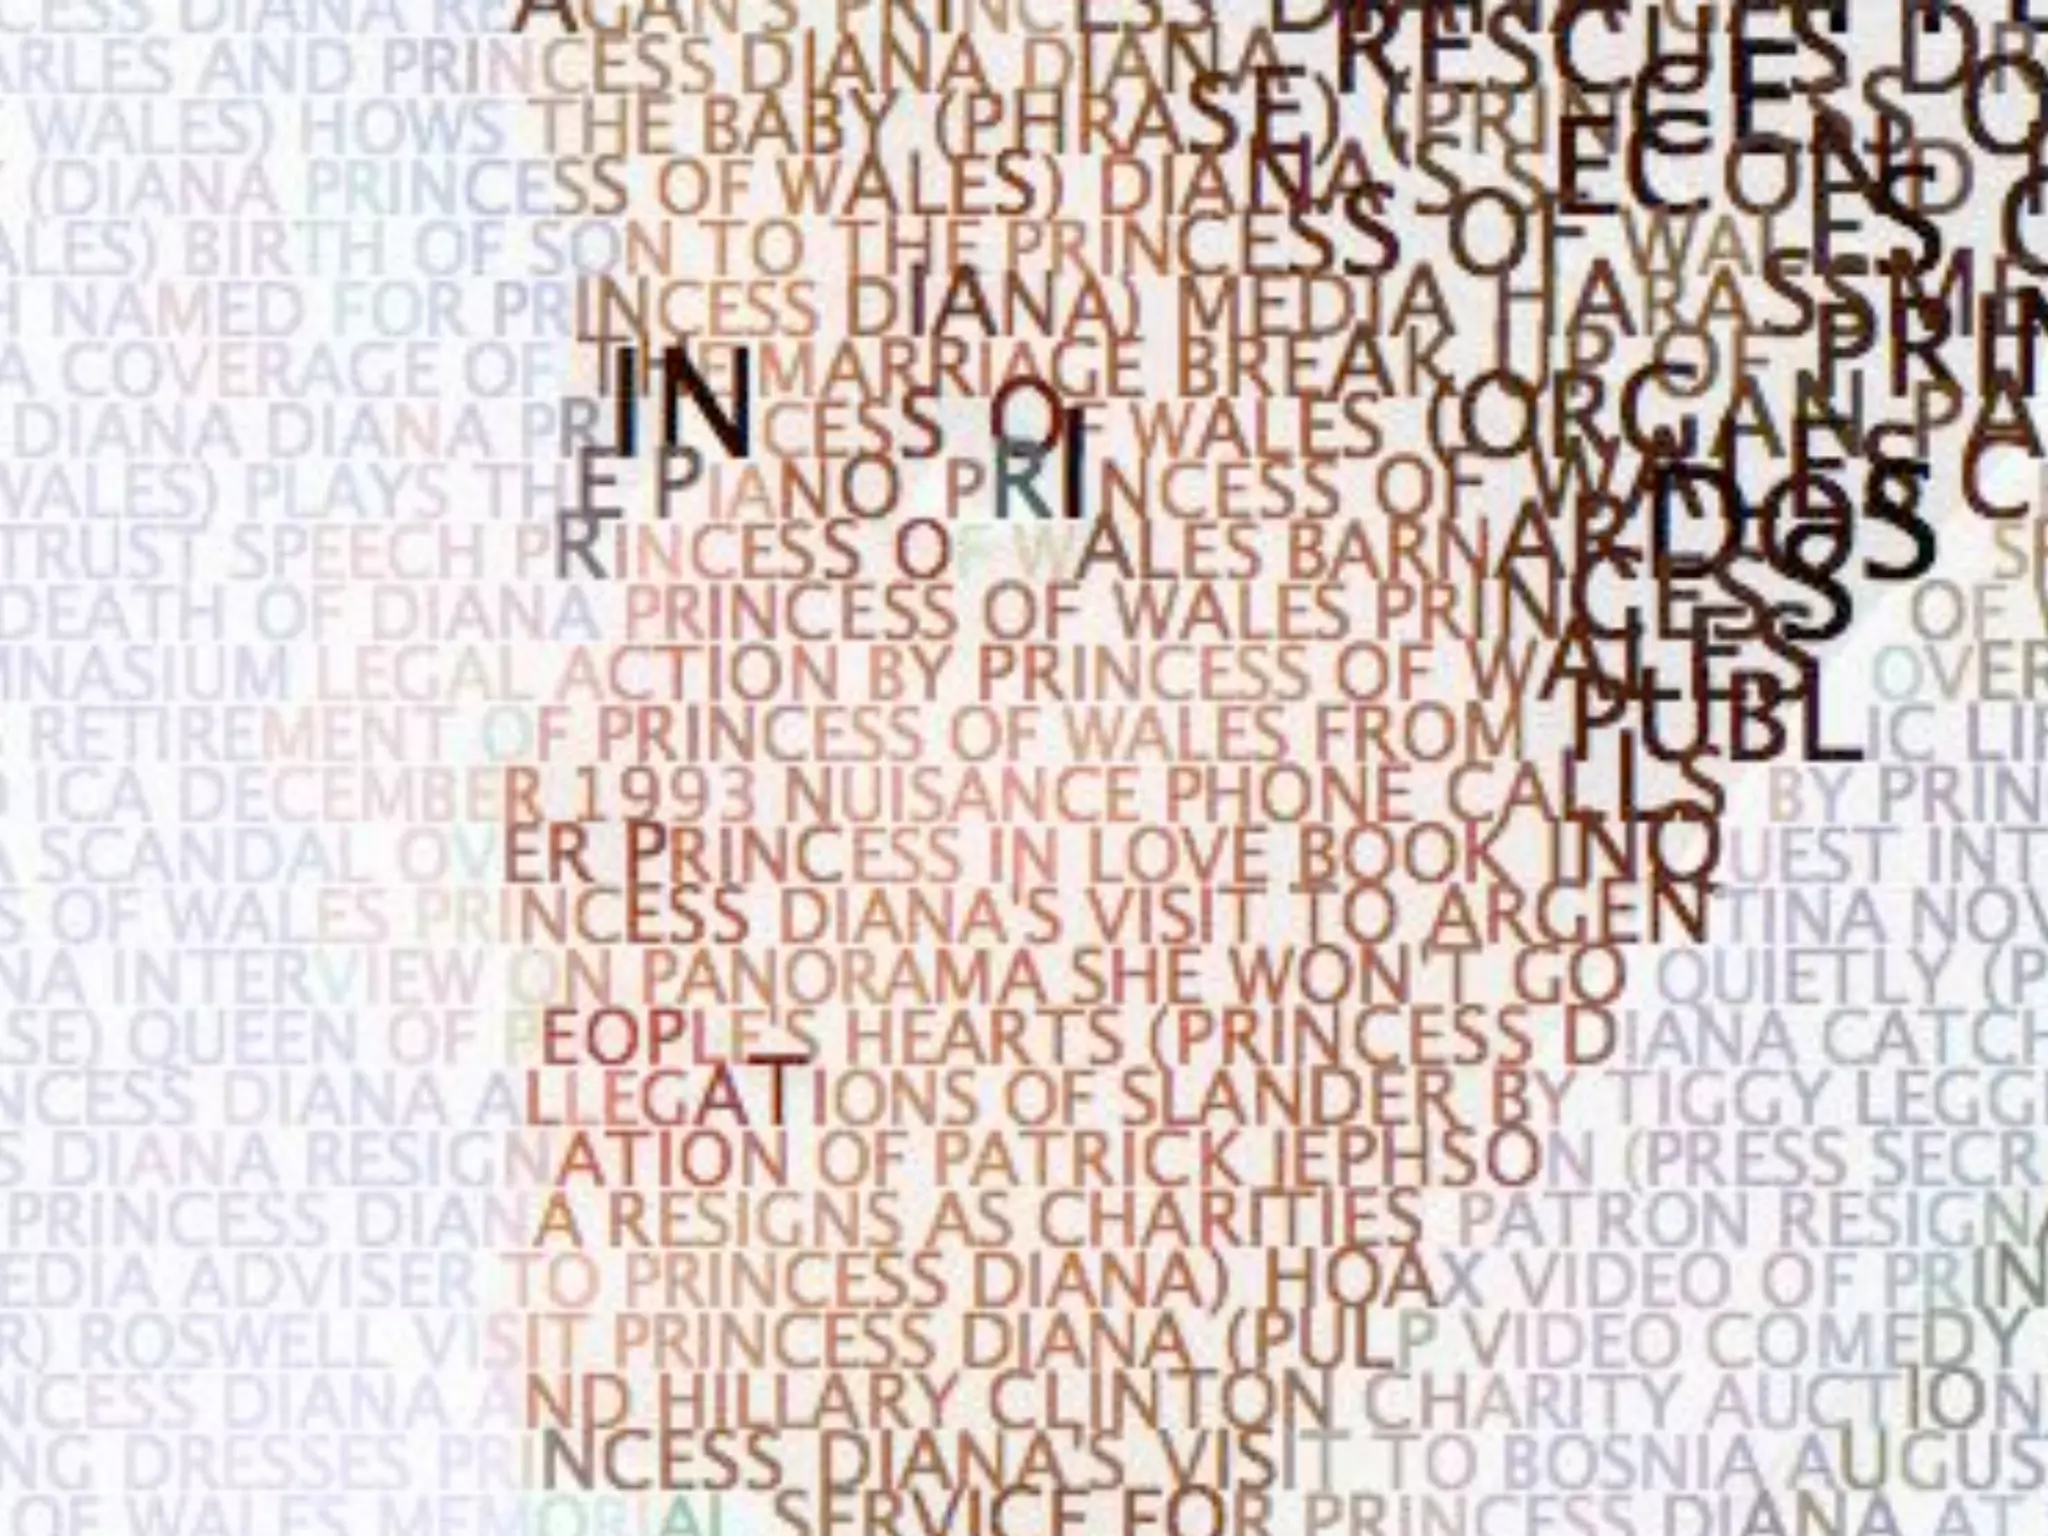 CESS DIANA REAGAN'S PRINCESS
ARLES AND PRINCESS DIANA DIANA RESCUES DR
WALES) HOWS THE BABY (PHRASE) (PRINCESS O
(DIANA PRINCESS OF WALES) DIANA'S SECOND
ALES) BIRTH OF SON TO THE PRINCESS OF WALES C
H NAMED FOR PRINCESS DIANA) MEDIA HARASSME
A COVERAGE OF THE MARRIAGE BREAK UP OF PRIN
DIANA DIANA PRINCESS OF WALES (ORGAN PA
WALES) PLAYS THE PIANO PRINCESS OF WALES C
TRUST SPEECH PRINCESS OF WALES BARNARDOS SP
DEATH OF DIANA PRINCESS OF WALES PRINCESS OF
MNASIUM LEGAL ACTION BY PRINCESS OF WALES OVER
RETIREMENT OF PRINCESS OF WALES FROM PUBLIC LIF
ICA DECEMBER 1993 NUISANCE PHONE CALLS BY PRIN
A SCANDAL OVER PRINCESS IN LOVE BOOK INQUEST INT
S OF WALES PRINCESS DIANA'S VISIT TO ARGENTINA NOV
NA INTERVIEW ON PANORAMA SHE WON'T GO QUIETLY (P
SE) QUEEN OF PEOPLE'S HEARTS (PRINCESS DIANA CATCH
NCESS DIANA ALLEGATIONS OF SLANDER BY TIGGY LEGG
S DIANA RESIGNATION OF PATRICK JEPHSON (PRESS SECR
PRINCESS DIANA RESIGNS AS CHARITIES PATRON RESIGNA
EDIA ADVISER TO PRINCESS DIANA) HOAX VIDEO OF PRIN
R) ROSWELL VISIT PRINCESS DIANA (PULP VIDEO COMEDY
NCESS DIANA AND HILLARY CLINTON CHARITY AUCTION
NG DRESSES PRINCESS DIANA'S VISIT TO BOSNIA AUGUS
OF WALES MEMORIAL SERVICE FOR PRINCESS DIANA AT